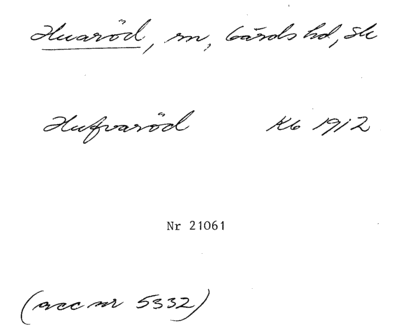 Huaröd, sn, Gärds hd, Sk
Hufvaröd Kb 1912
Nr 21061
(acc nr 5332)